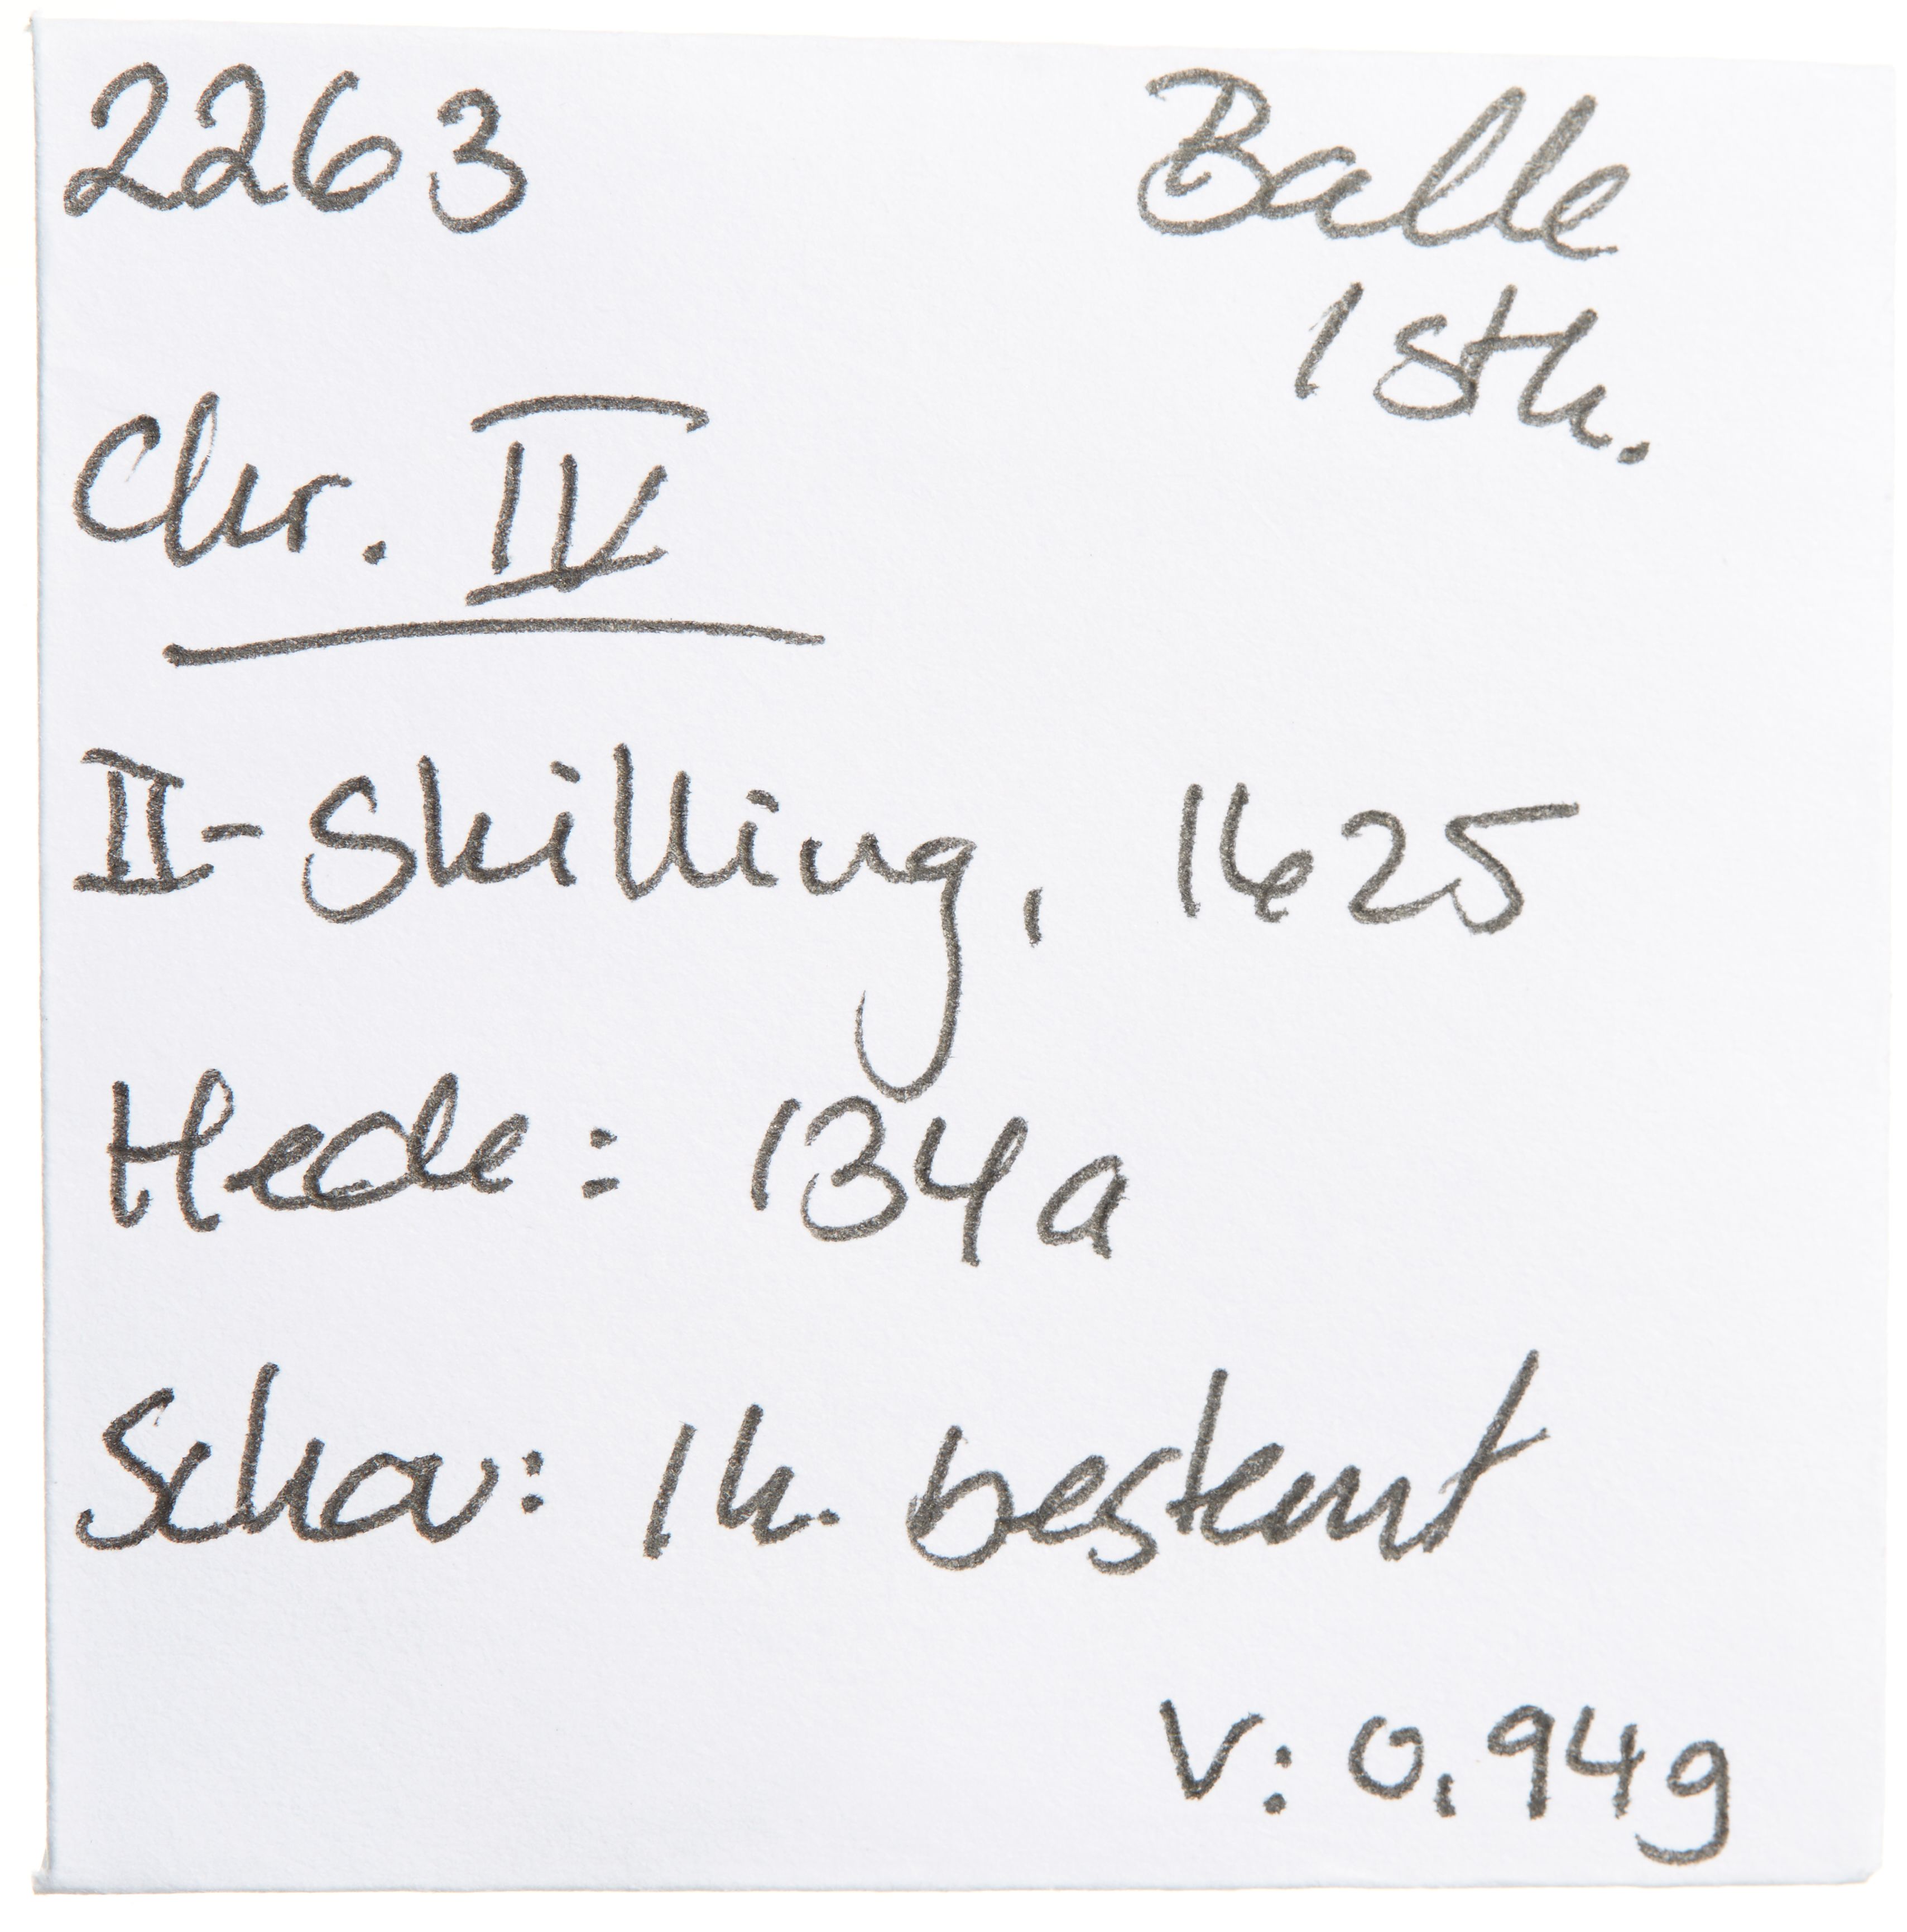 2263
Balle
1 stk.
Chr. IV
II-Skilling, 1625
Hede: 134a
Schou: Ik. bestemt
V: 0,94g